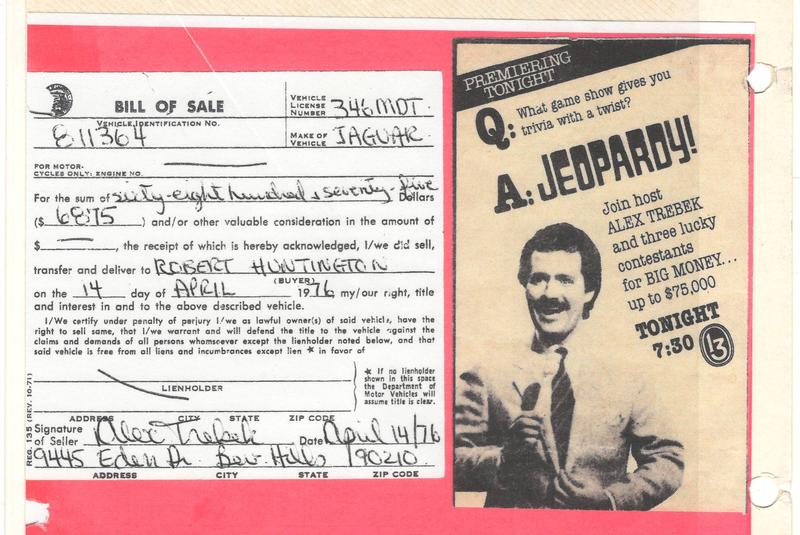 BILL OF SALE
VEHICLE
LICENSE
NUMBER
346MDT
VEHICLE IDENTIFICATION NO.
811364
MAKE OF
VEHICLE
JAGUAR
FOR MOTOR-
CYCLES ONLY: ENGINE NO.
For the sum of sixty-eight hundred & seventy-five Dollars
($ 6875 ) and/or other valuable consideration in the amount of
$ , the receipt of which is hereby acknowledged, I/we did sell,
transfer and deliver to ROBERT HUNTINGTON
(BUYER)
on the 14 day of APRIL 1976 my/our right, title
and interest in and to the above described vehicle.
I/We certify under penalty of perjury I/we as lawful owner(s) of said vehicle, have
the right to sell same, that I/we warrant and will defend the title to the vehicle against the
claims and demands of all persons whomsoever except the lienholder noted below, and that
said vehicle is free from all liens and incumbrances except lien * in favor of
LIENHOLDER
* If no lienholder
shown in this space
the Department of
Motor Vehicles will
assume title is clear.
ADDRESS CITY STATE ZIP CODE
Signature
of Seller Alex Trebek Date April 14/76
9445 Eden Dr. Bev. Hills 90210
ADDRESS CITY STATE ZIP CODE
REG. 135 (REV. 10-71)
PREMIERING
TONIGHT
Q: What game show gives you
trivia with a twist?
A: JEOPARDY!
Join host
ALEX TREBEK
and three lucky
contestants
for BIG MONEY...
up to $75,000
TONIGHT
7:30 13